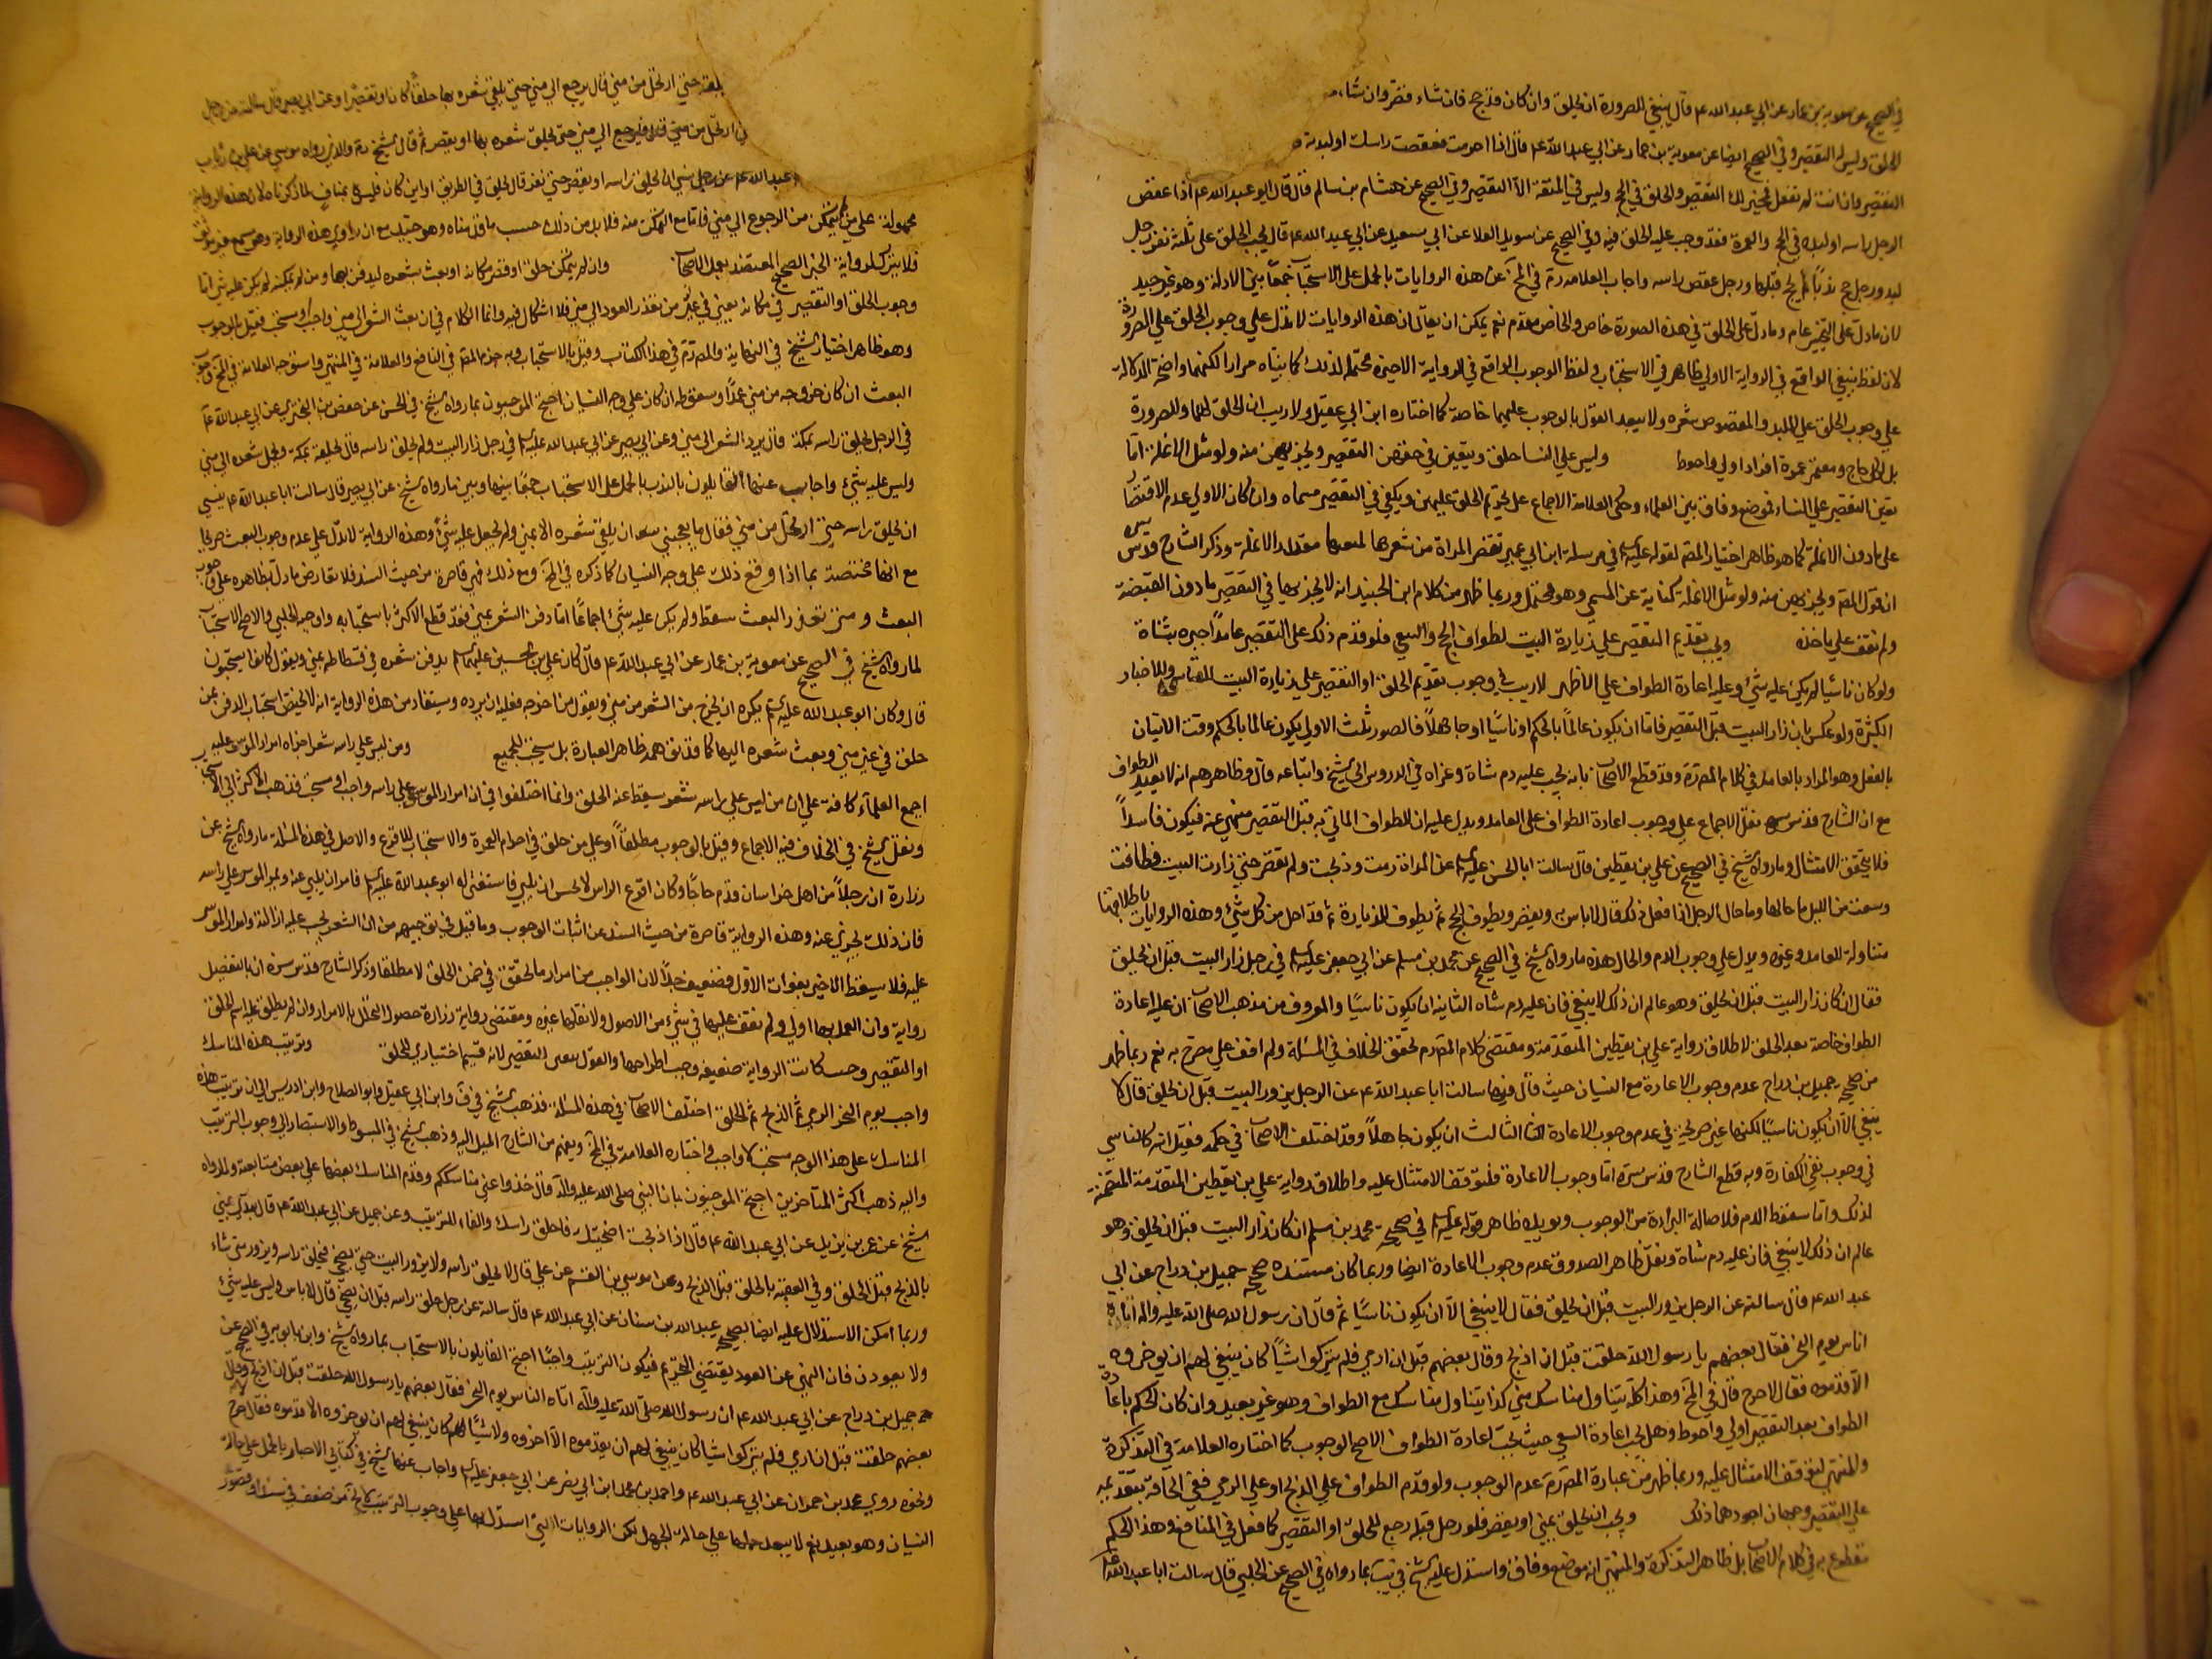 في الصحيح عن معوية بن عمار عن ابي عبد الله عم قال ينبغي للصرورة ان يحلق وان كان قد حج فان شاء قصر وان شاء
الحلق وليس له التقصير وفي الصحيح ايضا عن معوية بن عمار عن ابي عبد الله عم قال اذا احرمت فعقصت راسك او لبدته
التقصير وان انت لم تفعل فمخير لك التقصير والحلق في الحج وليس في المتعة الا التقصير وفي الصحيح عن هشام بن سالم قال قال ابو عبد الله عم اذا عقص
الرجل راسه او لبده في الحج والعمرة فقد وجب عليه الحلق فيه وفي الصحيح عن سويد القلا عن ابي سعيد عن ابي عبد الله عم قال يجب الحلق على ثلثة نفر رجل
لبد ورجل حج ندبا لم يحج قبلها ورجل عقص راسه واجاب العلامة ره في المخ عن هذه الروايات بالحمل على الاستحباب جمعا بين الادلة وهو غير جيد
لان ما دل على التخيير عام وما دل على الحلق في هذه الصورة خاص والخاص مقدم نعم يمكن ان يقال ان هذه الروايات لا تدل على وجوب الحلق على الصرورة
لان لفظ ينبغي الواقع في الرواية الاولى ظاهر في الاستحباب ولفظ الوجوب الواقع في الرواية الاخيرة محتمل لذلك كما بيناه مرارا لكنهما واضحة الدلالة
على وجوب الحلق على الملبد والمعقوص شعره ولا يبعد القول بالوجوب عليهما خاصة كما اختاره ابن ابي عقيل ولا ريب ان الحلق لهما وللصرورة
بل لكل حاج ومعتمر عمرة افراد اولى واحوط وليس على النسا حلق ويتعين في حقهن التقصير ويجزيهن منه ولو مثل الانملة اما
تعين التقصير على النساء فموضع وفاق بين العلماء وحكى العلامة الاجماع على تحريم الحلق عليهن ويكفي في التقصير مسماه وان كان الاولى عدم الاقتصار
على ما دون الانملة كما هو ظاهر اختيار المصّ لقوله عليه السلام في مرسلة ابن ابي عمير تقصر المراة من شعرها لعمرتها مقدار الانملة وذكر الشارح قدس سره
ان قول المصّ ويجزيهن منه ولو مثل الانملة كناية عن المسمى وهو محتمل وربما ظهر من كلام ابن الجنيد انه لا يجزيها في التقصير ما دون القبضة
ولم نقف على ماخذه ويجب تقديم التقصير على زيارة البيت لطواف الحج والسعي فلو قدم ذلك على التقصير عامدا جبره بشاة
ولو كان ناسيا لم يكن عليه شيء وعليه اعادة الطواف على الاظهر لا ريب في وجوب تقديم الحلق او التقصير على زيارة البيت للتاسي وللاخبار
الكثيرة ولو عكس بان زار البيت قبل التقصير فاما ان يكون عالما بالحكم او ناسيا او جاهلا فالصور ثلث الاولى ان يكون عالما بالحكم وقت الاتيان
بالفعل وهو المراد بالعامد في كلام المصّ وقد قطع الاصحاب بانه يجب عليه دم شاة وعزاه في الدروس الى الشيخ واتباعه قال وظاهرهم انه لا يعيد الطواف
مع ان الشارح قدس سره نقل الاجماع على وجوب اعادة الطواف على العامد ويدل عليه ان الطواف الماتي به قبل التقصير منهي عنه فيكون فاسدا
فلا يتحقق الامتثال وما رواه الشيخ في الصحيح عن علي بن يقطين قال سالت ابا الحسن عليه السلام عن المراة رمت وذبحت ولم تقصر حتى زارت البيت فطافت
وسعت من الليل ما حالها وما حال الرجل اذا فعل ذلك قال لا باس به ويقصر ويطوف للحج ثم يطوف للزيارة ثم قد احل من كل شيء وهذه الروايات باطلاقها
متناولة للعامد وغيره ويدل على وجوب الدم والحال هذه ما رواه الشيخ في الصحيح عن محمد بن مسلم عن ابي جعفر عليه السلام في رجل زار البيت قبل ان يحلق
فقال ان كان زار البيت قبل ان يحلق وهو عالم ان ذلك لا ينبغي فان عليه دم شاه الثانية ان يكون ناسيا والمعروف من مذهب الاصحاب ان عليه اعادة
الطواف خاصة بعد الحلق لاطلاق رواية علي بن يقطين المتقدمة ومقتضى كلام المصّ تحقق الخلاف في المسئلة ولم اقف على مصرح به نعم ربما ظهر
من صحيحة جميل بن دراج عدم وجوب الاعادة مع النسيان حيث قال فيها سالت ابا عبد الله عم عن الرجل يزور البيت قبل ان يحلق قال لا
ينبغي الا ان يكون ناسيا لكنها غير صريحة في عدم وجوب الاعادة الثالث ان يكون جاهلا وقد اختلف الاصحاب في حكمه فقيل انه كالناسي
في وجوب نفي الكفارة وبه قطع الشارح قدس سره اما وجوب الاعادة فلتوقف الامتثال عليه واطلاق رواية علي بن يقطين المتقدمة المتضمنة
لذلك واما سقوط الدم فلاصالة البراءة من الوجوب ويؤيده ظاهر قوله عليه السلام في صحيحة محمد بن مسلم ان كان زار البيت قبل ان يحلق وهو
عالم ان ذلك لا ينبغي فان عليه دم شاة ونقل ظاهر الصدوق عدم وجوب الاعادة ايضا وربما كان مستنده صحيحة جميل بن دراج عن ابي
عبد الله عم قال سالته عن الرجل يزور البيت قبل ان يحلق فقال لا ينبغي الا ان يكون ناسيا ثم قال ان رسول الله صلى الله عليه واله اتاه
اناس يوم النحر فقال بعضهم يا رسول الله حلقت قبل ان اذبح وقال بعضهم قبل ان ارمي فلم يتركوا شيئا كان ينبغي لهم ان يؤخروه
الا قدموه فقال لا حرج قال في المخ وهذا كله يتناول مناسك منى كذا يتناول مناسك مع الطواف وهو غير بعيد وان كان الحكم باعادة
الطواف بعد التقصير اولى واحوط وهل يجب اعادة السعي حيث يجب اعادة الطواف الاصح الوجوب كما اختاره العلامة في التذكرة
والمنتهى لتوقف الامتثال عليه وربما ظهر من عبارة المصّ عدم الوجوب ولو قدم الطواف على الذبح او على الرمي ففي الحاقه بتقديمه
على التقصير وجهان اجودهما ذلك ويجب ان يحلق بمنى او يقصر فلو رحل قبله رجع للحلق او التقصير كما فعل في المنافع وهذا الحكم
مقطوع به في كلام الاصحاب بل ظاهر التذكرة والمنتهى انه موضع وفاق واستدل عليه الشيخ في يب بما رواه في الصحيح عن الحلبي قال سالت ابا عبد الله
حتى ارتحل من منى قال يرجع الى منى حتى يلقي شعره بها حلقا كان او تقصيرا وعن ابي بصير قال سالته عن رجل
ارتحل من منى قال فليرجع الى منى حتى يحلق شعره بها او يقصر ثم قال الشيخ ره والذي رواه موسى عن علي بن رئاب
عبد الله عم عن رجل نسي ان يحلق راسه او يقصر حتى نفر قال يحلق في الطريق او اين كان فليس بمناف لما ذكرناه لان هذه الرواية
محمولة على من لم يتمكن من الرجوع الى منى فاما مع التمكن منه فلا بد من ذلك حسب ما قدمناه وهو جيد مع ان راوي هذه الرواية وهو مسمع غير موثق
فلا يترك لرواية الخبر الصحيح المعتضد بعمل الاصحاب وان لم يتمكن حلق او قصر مكانه او بعث بشعره ليدفن بها ومن لم يمكنه لم يكن عليه شيء اما
وجوب الحلق او التقصير في مكانه بعيني في غير من تعذر العود الى منى فلا اشكال فيه وانما الكلام في ان بعث الشعر الى منى واجب او مستحب فقيل بالوجوب
وهو ظاهر اختيار الشيخ في النهاية والمصّ في هذا الكتاب وقيل بالاستحباب وبه جزم المصّ في النافع والعلامة في المنتهى واستوجه العلامة في المخ وجوب
البعث ان كان خروجه من منى عمدا وسقوطه ان كان على وجه النسيان احتج الموجبون بما رواه الشيخ في الحسن عن حفص بن البختري عن ابي عبد الله عم
في الرجل يحلق راسه بمكة قال يرد الشعر الى منى وعن ابي بصير عن ابي عبد الله عليه السلام في رجل زار البيت ولم يحلق راسه قال يحلقه بمكة ويحمل شعره الى منى
وليس عليه شيء واجاب عنهما القايلون بالندب بالحمل على الاستحباب جمعا بينها وبين ما رواه الشيخ عن ابي بصير قال سالت ابا عبد الله عم ينسى
ان يحلق راسه حتى ارتحل من منى فقال ما يعجبني ان يلقي شعره الا بمنى ولم يجعل عليه شيئا وهذه الرواية لا تدل على عدم وجوب البعث صريحا
مع انها مختصة بما اذا وقع ذلك على وجه النسيان كما ذكره في المخ ومع ذلك فهي قاصرة من حيث السند فلا تعارض ما دل بظاهره على وجوب
البعث ومتى تعذر البعث سقط ولم يكن عليه شيء اجماعا اما دفن الشعر بمنى فقد قطع الاكثر باستحبابه واوجبه الحلبي والاصح الاستحباب
لما رواه الشيخ في الصحيح عن معوية بن عمار عن ابي عبد الله عم قال كان علي بن الحسين عليهما السلام يدفن شعره في فسطاطه بمنى ويقول كانوا يستحبون
قال وكان ابو عبد الله عليه السلام يكره ان يخرج من الشعر من منى ويقول من اخرجه فعليه ان يرده ويستفاد من هذه الرواية انه لا يختص استحباب الدفن بمن
حلق في غير منى وبعث شعره اليها كما قد يوهمه ظاهر العبارة بل يستحب للجميع ومن ليس على راسه شعر اجزاه امرار الموسى عليه
اجمع العلماء كافة على ان من ليس على راسه شعر يسقط عنه الحلق وانما اختلفوا في ان امرار الموسى على راسه واجب او مستحب فذهب الاكثر الى الاستحباب
ونقل الشيخ في الخلاف فيه الاجماع وقيل بالوجوب مطلقا او على من حلق في احرام العمرة والاستحباب للاقرع والاصل في هذه المسئلة ما رواه الشيخ عن
زرارة ان رجلا من اهل خراسان قدم حاجا وكان اقرع الراس لا يحسن ان يلبي فاستفتى له ابو عبد الله عليه السلام فامر ان يلبي عنه ويمر الموسى على راسه
فان ذلك يجزي عنه وهذه الرواية قاصرة من حيث السند عن اثبات الوجوب وما قيل في توجيهه من ان الشعر يجب عليه ازالته وامرار الموسى
عليه فلا يسقط الاخير بفوات الاول فضعيف جدا لان الواجب من امرار ما تحقق في ضمن الحلق لا مطلقا وذكر الشارح قدس سره ان بالتفصيل
رواية وان العمل بها اولى ولم نقف عليها في شيء من الاصول ولا نقلها غيره ومقتضى رواية زرارة حصول التحلل بالامرار وان لم يطلق عليه اسم الحلق
او التقصير وحيث كانت الرواية ضعيفة وجب اطراحها والقول بتعين التقصير لانه قسيم اختياري للحلق وترتيب هذه المناسك
واجب يوم النحر الرمي ثم الذبح ثم الحلق اختلف الاصحاب في هذه المسئلة فذهب الشيخ في ف وابن ابي عقيل وابو الصلاح وابن ادريس الى ان ترتيب هذه
المناسك على هذا الوجه مستحب لا واجب واختاره العلامة في المخ ويفهم من الشارح الميل اليه وذهب الشيخ في المبسوط والاستبصار الى وجوب الترتيب
واليه ذهب اكثر المتاخرين احتج الموجبون بان النبي صلى الله عليه واله قال خذوا عني مناسككم وقدم المناسك بعضها على بعض متابعة ولما رواه
الشيخ عن عمر بن يزيد عن ابي عبد الله عم قال اذا ذبحت اضحيتك فاحلق راسك والفاء للترتيب وعن جميل عن ابي عبد الله عم قال يبدا بمنى
بالذبح قبل الحلق وفي العقيقة بالحلق قبل الذبح وعن موسى بن القسم عن علي قال لا يحلق راسه ولا يزور البيت حتى يضحي فيحلق راسه ويزور متى شاء
وربما امكن الاستدلال عليه ايضا بصحيحة عبد الله بن سنان عن ابي عبد الله عم قال سالته عن رجل حلق راسه قبل ان يضحي قال لا باس وليس عليه شيء
ولا يعودن فان النهي عن العود يقتضي التحريم فيكون الترتيب واجبا احتج القايلون بالاستحباب بما رواه الشيخ وابن بابويه في الصحيح عن
جميل بن دراج عن ابي عبد الله عم ان رسول الله صلى الله عليه واله اتاه الناس يوم النحر فقال بعضهم يا رسول الله حلقت قبل ان اذبح وقال
بعضهم حلقت قبل ان ارمي فلم يتركوا شيئا كان ينبغي لهم ان يقدموه الا اخروه ولا شيئا كان ينبغي لهم ان يؤخروه الا قدموه فقال لا حرج
ونحوه روى محمد بن حمران عن ابي عبد الله عم واحمد بن محمد ابن ابي نصر عن ابي جعفر عليه السلام واجاب عنها الشيخ في كتابي الاخبار بالحمل على حالة
النسيان وهو بعيد نعم لا يبعد حملها على حالة الجهل لكن الروايات التي استدل بها على وجوب الترتيب لا تخلو من ضعف في سند او قصور